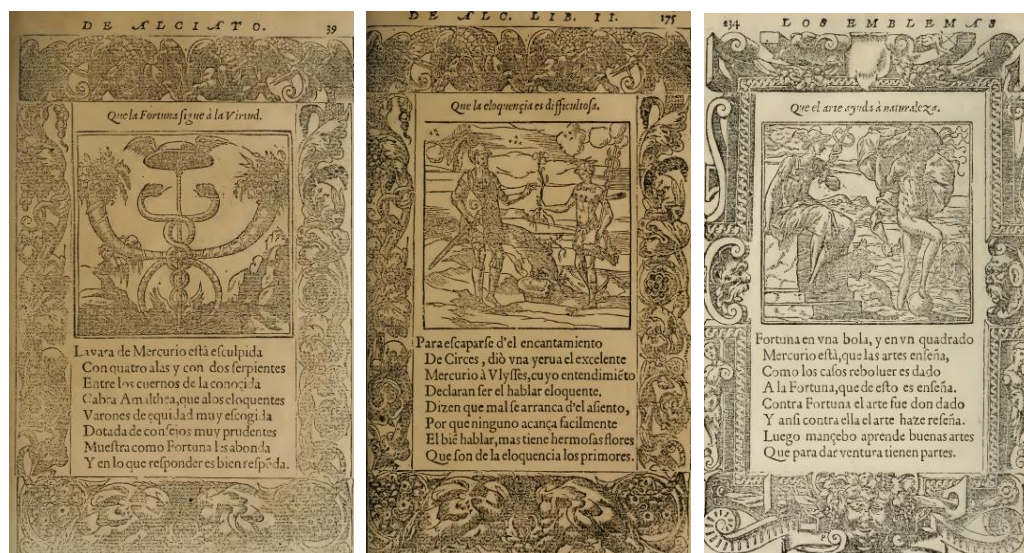 DE ALCIATO. 39
Que la Fortuna ſigue à la Virtud.
La vara de Mercurio eſtà eſculpida
Con quatro alas y con dos ſerpientes
Entre los cuernos de la conoçida
Cabra Amalthea, que a los eloquentes
Varones de equidad muy eſcogida
Dotada de conſejos muy prudentes
Mueſtra como Fortuna les abonda
Y en lo que reſponder es bien reſpõda.
DE ALC. LIB. II. 175
Que la eloquençia es difficultoſa.
Para eſcaparſe d'el encantamiento
De Circes, diò vna yerua el excelente
Mercurio à Vlyſſes, cuyo entendimiẽto
Declaran ſer el hablar eloquente.
Dizen que mal ſe arranca d'el aſiento,
Por que ninguno acança facilmente
El biẽ hablar, mas tiene hermoſas flores
Que ſon de la eloquencia los primores.
234 LOS EMBLEMAS
Que el arte ayuda à naturaleza.
Fortuna en vna bola, y en vn quadrado
Mercurio eſtà, que las artes enſeña,
Como los caſos reboluer es dado
A la Fortuna, que de eſto es enſeña.
Contra Fortuna el arte fue don dado
Y anſi contra ella el arte haze reſeña.
Luego mançebo aprende buenas artes
Que para dar ventura tienen partes.